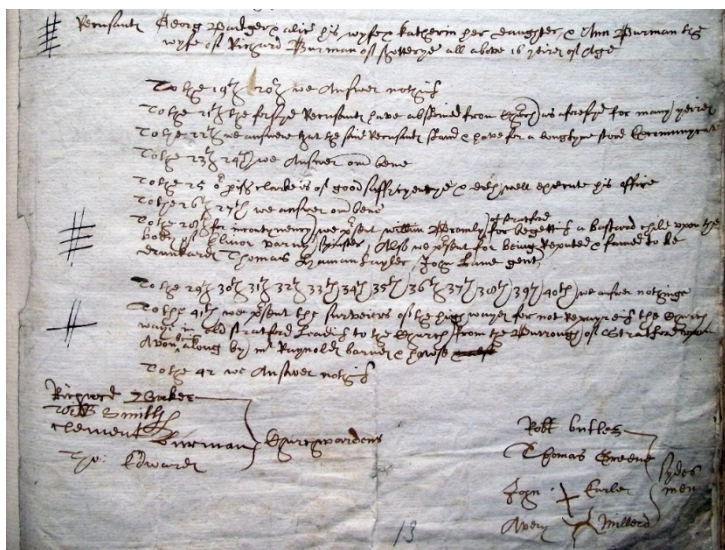 Recusants Georg Badger & alice his wyfe & katherin her daughter & Ann Burman the
wyfe of Richard Burman of Shotterye all above 16 yeires of Age
To the 19th 20th we Answer nothing
To the 21th the forsyd Recusants have absteined from Church as aforesyd for many yeires
To the 22th we answere that the sayd Recusants stand & have for a long tyme stood Excommunycat
To the 23th 24th we Answer omn bene
To the 25 or pish clarke is of good suffityencye & doth well execute his office
To the 26th 27th we answer omn bene
To the 28th for incontinency we psent william of stratford for begetting a bastard child upon the
body of Elinor Spinster, Also we psent for being Reputed & famed to be
drunkards Thomas Taylor, John Lane gent,
To the 29th 30th 31th 32th 33th 34th 35th 36th 37th 38th 39th 40th we answer nothinge
To the 41th we psent the surveiers of the high wayes for not Repayreing the Church
waye in old stratford Leading to the Church from the Burrough of Stratford upon
Avon along by mr Raynolds barne & howse
To the 42 we Answer nothing
Richard
Smith
Clement Burman
Tho: Edwards
Churchwardens
Robt butler
Thomas Greene
John Earler
Avery
sydes
men
13